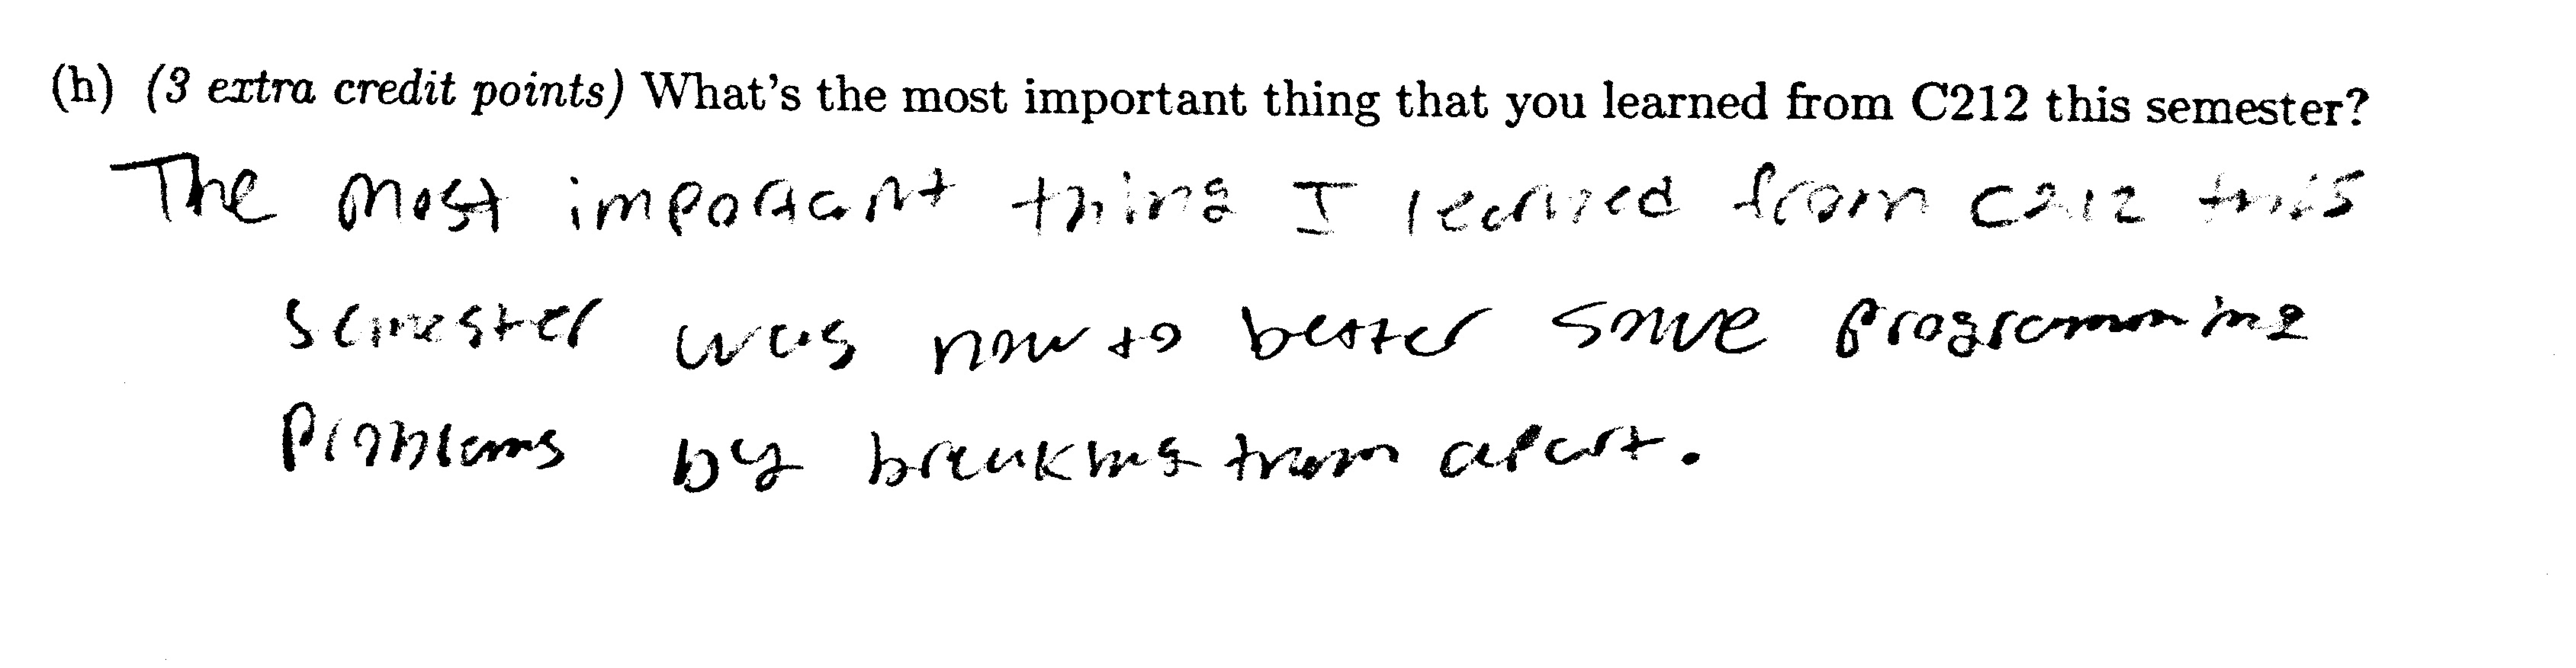 (h) (3 extra credit points) What's the most important thing that you learned from C212 this semester?
The most important thing I learned from C212 this
semester was how to better solve programming
problems by breaking them apart.